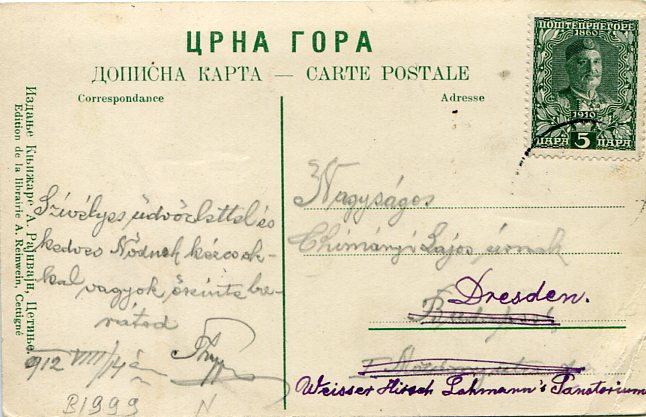 ЦРНА ГОРА
ДОПИСНА КАРТА — CARTE POSTALE
Correspondance
Adresse
ПОШТЕ ЦРНЕ ГОРЕ
1860
1910
ПАРА 5 ПАРА
Издање Књижаре А. Рајнвајн, Цетиње.
Edition de la librairie A. Reinwein, Cettigné
Szívélyes üdvözlettel és
kedves Nődnek kézcsók-
kal vagyok, őszinte be-
rátod
912 VIII
B1999
N
Nagyságos
Lajos úrnak
Dresden.
Budapest
Weisser Hirsch Lahmann's Sanatorium